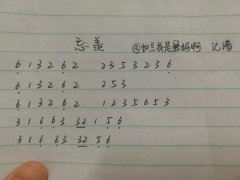 忘羡 @如兰我是舅妈啊 记谱
6 1 3 2 6 2 2 3 5 3 2 3 6
6 1 3 2 6 2 2 5 3
6 1 3 2 6 2 1 2 3 5 6 5 3
3 1 6 6 3 3 2 1 5 6
3 1 6 6 3 3 2 5 6